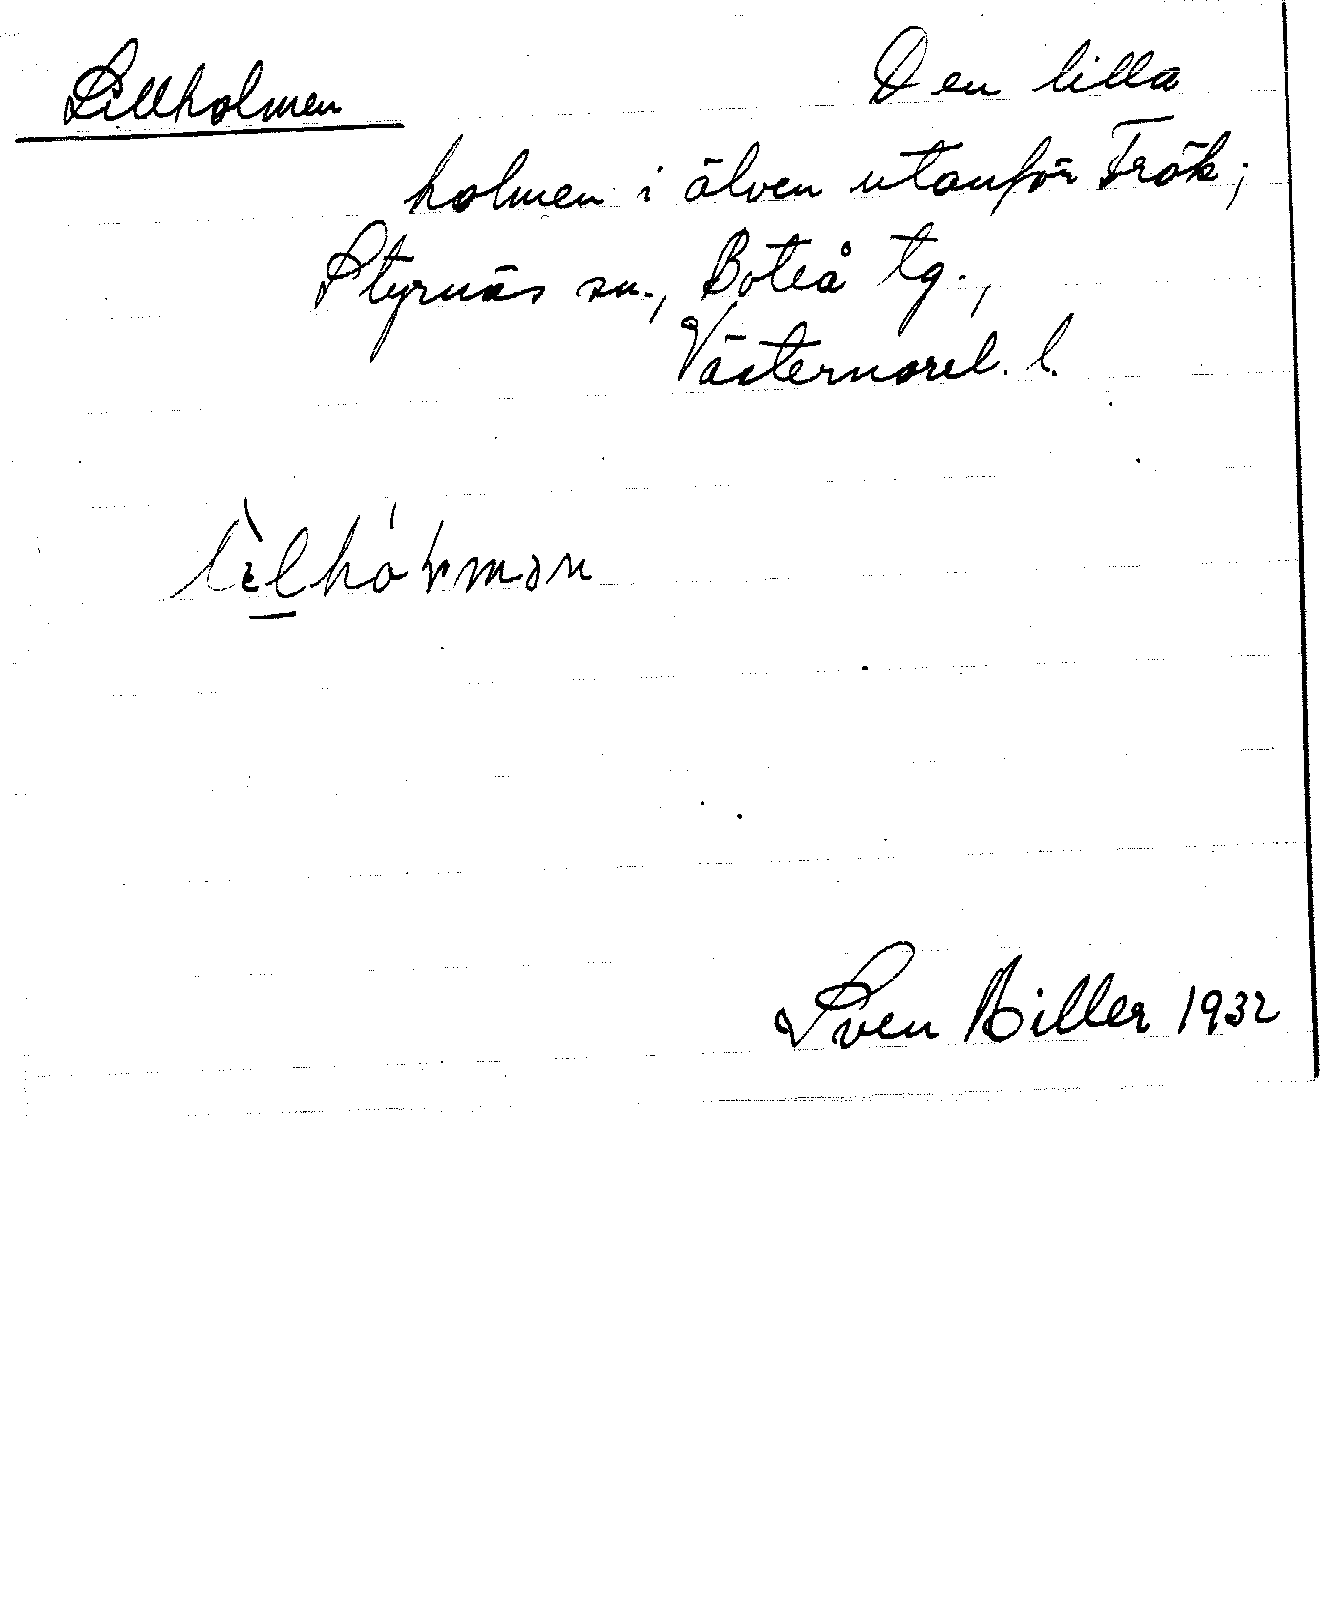 Lillholmen
Den lilla
holmen i älven utanför Frök;
Styrnäs sn., Boteå tg.,
Västernorrl. l.
Sven Hiller 1932